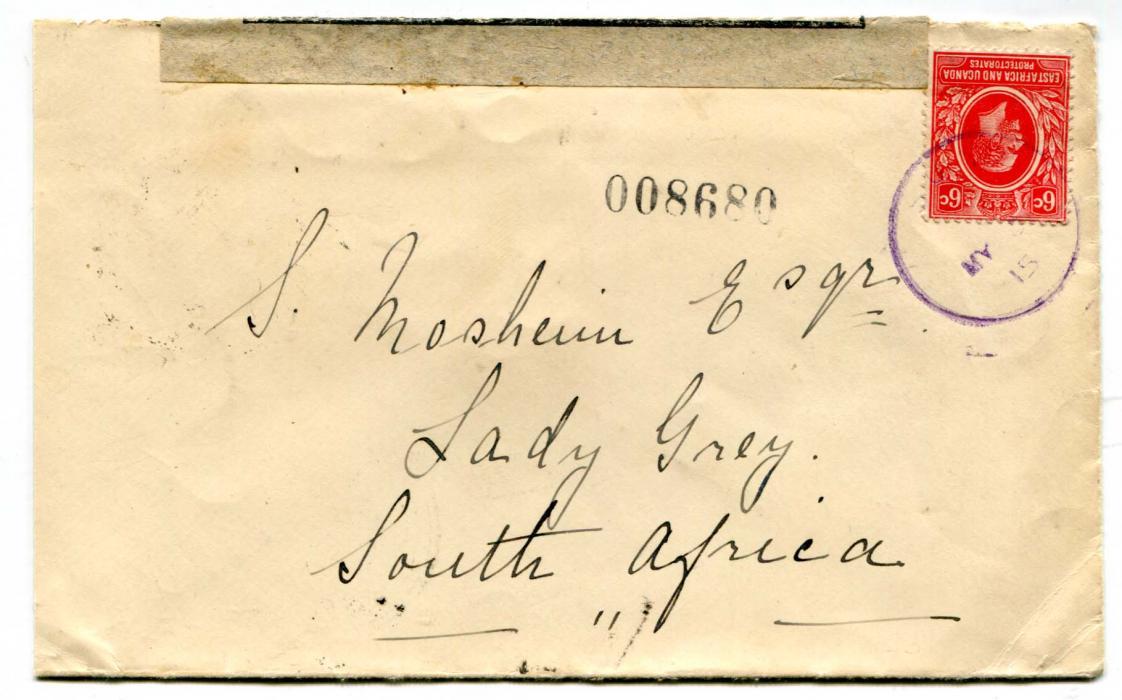 EAST AFRICA AND UGANDA
PROTECTORATES
6c 6c
008680
MY
15
S. Mosheim Esqr
Lady Grey.
South Africa